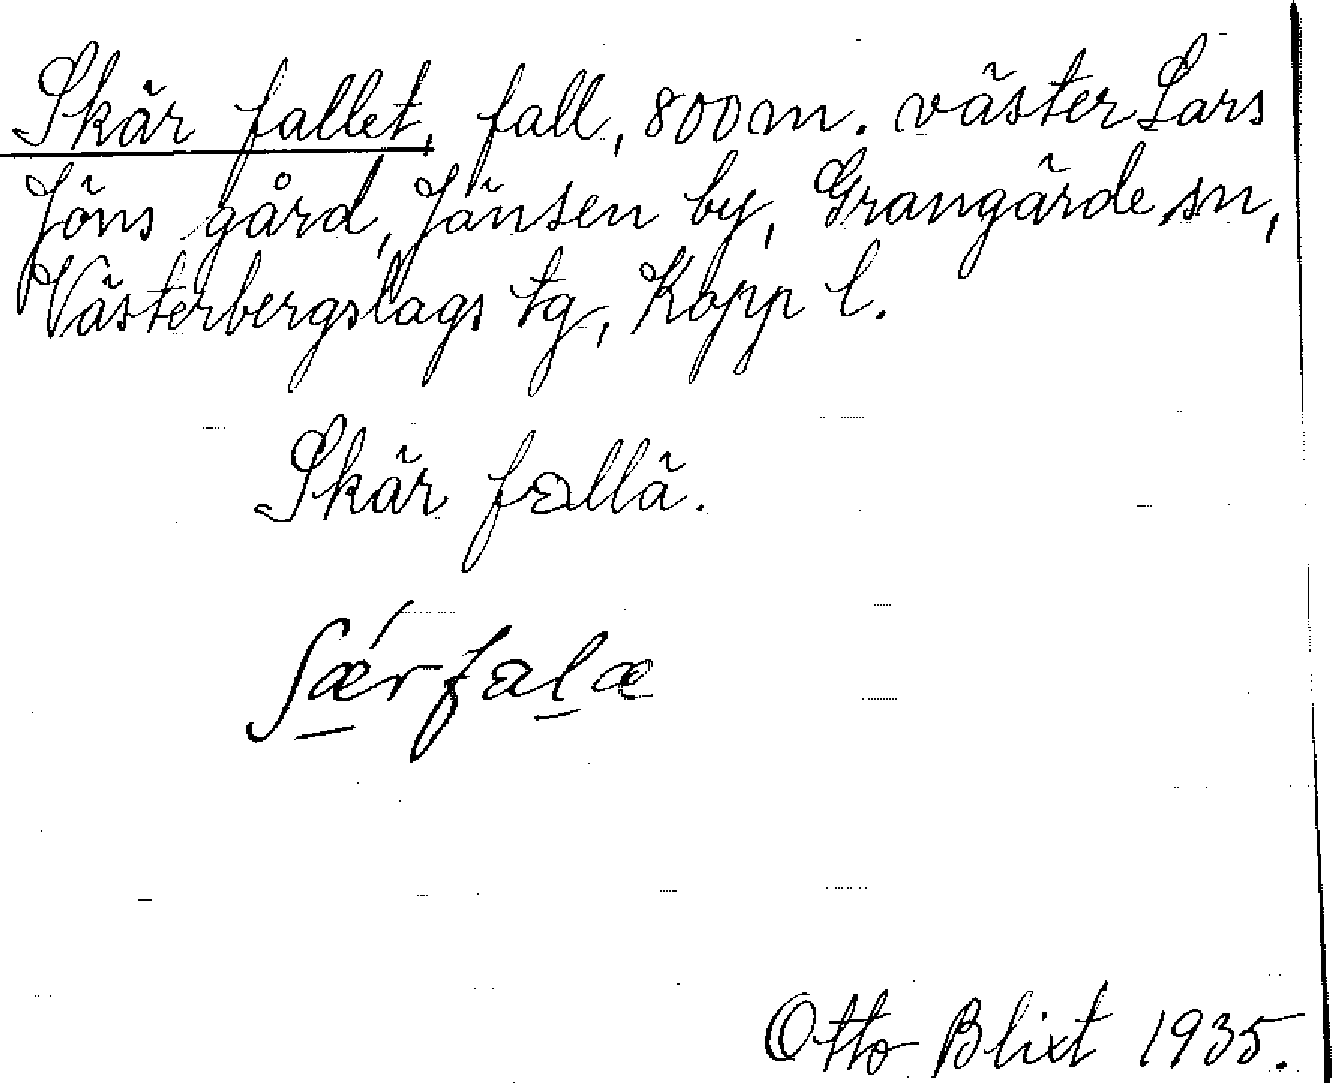 Skär fallet, fall, 800 m. väster Lars
Jöns gård, Jänsen by, Grangärde sn,
Västerbergslags tg, Kopp l.
Skär fallä.
ʃǽrfalæ
Otto Blixt 1935.